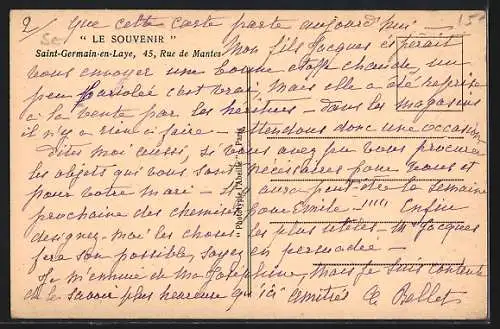 2/ que cette carte parte aujourd'hui —
15
" LE SOUVENIR "
Saint-Germain-en-Laye, 45, Rue de Mantes
Mon fils Jacques espérait
vous envoyer une bonne étoffe chaude un
peu bariolée c'est vrai, mais elle a été reprise
à la vente par les héritiers — dans les magasins
il n'y a rien à faire — attendons donc une occasion
Dites moi aussi, si vous avez pu vous procurer
les objets qui vous sont nécessaires pour vous et
pour votre mari — il y aura peut-être la semaine
prochaine des chemises pour Emile — """ Enfin
désignez-moi les choses les plus utiles — M Jacques
fera son possible, soyez en persuadée —
Je m'ennuie de ma Joséphine, mais je suis contente
de la savoir plus heureuse qu'ici amitiés Bellet
Phototypie " Abeille " Paris